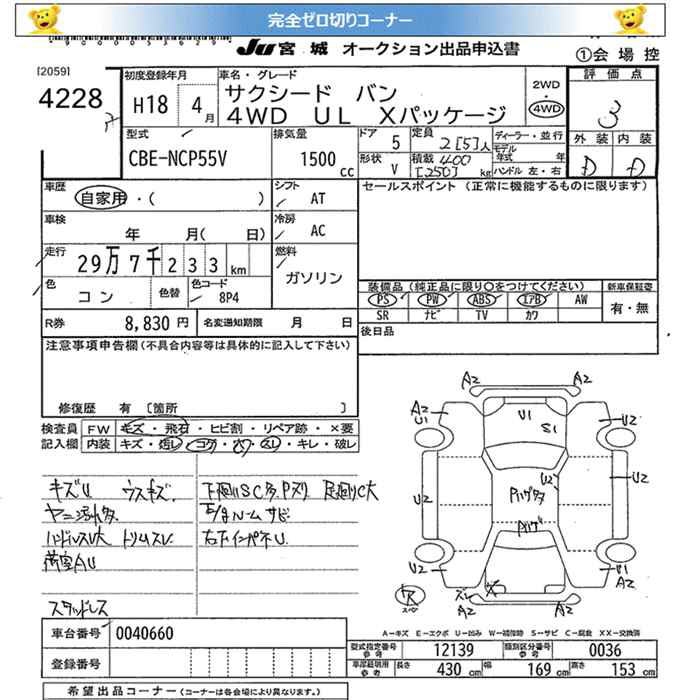 完全ゼロ切りコーナー
JU 宮 城 オークション出品申込書
①会 場 控
[2059]
4228
初度登録年月
H18 4月
車名・グレード
サクシード バン
4WD UL Xパッケージ
2WD
・
4WD
評 価 点
3
外 装 内 装
D D
型式
CBE-NCP55V
排気量
1500 cc
ドア 5
形状 V
定員 2[5]人
積載 400 [250] kg
ディーラー・並行
モデル年式 年
ハンドル 左・右
車歴
自家用・( )
シフト
AT
セールスポイント (正常に機能するものに限ります)
車検
年 月( 日)
冷房
AC
走行
29万7千233 km
燃料
ガソリン
色
コン
色替
色コード
8P4
装備品(純正品に限り○をつけてください)
新車保証書
PS PW ABS エアB AW
SR ナビ TV カワ
有・無
R券 8,830 円
名変通知期限 月 日
後日品
注意事項申告欄(不具合内容等は具体的に記入して下さい)
修復歴 有 [箇所 ]
検査員記入欄
FW キズ・飛石・ヒビ割・リペア跡・×要
内装 キズ・汚レ・コゲ・穴・スレ・キレ・破レ
キズU ウスキズ
ヤニ汚れ多
ハンドルスレ大 トリムスレ
荷室AU
スタッドレス
下廻りSC多 Pヌリ 足廻りC大
E/gルーム サビ
右下インパネU
A2 A2
A2
U1
U1
S1
U2
U2
U2
U2
Pハゲ多
Pハゲ
U2
U1
A2
ズレ
A2
A2
A-キズ E-エクボ U-凹み W-補修跡 S-サビ C-腐食 XX-交換済
車台番号 0040660
登録番号
型式指定番号 参考 12139
類別区分番号 参考 0036
車庫証明用 参考
長さ 430 cm
幅 169 cm
高さ 153 cm
希望出品コーナー(コーナーは各会場により異なります。)